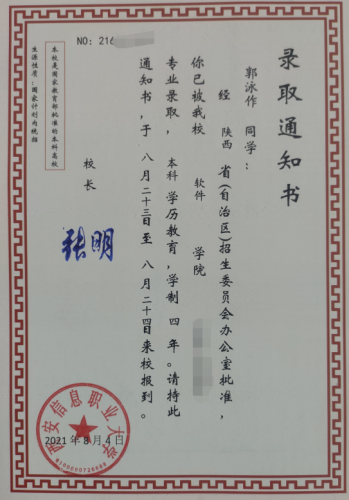 NO: 216
录取通知书
郭泳作 同学：
经 陕西 省(自治区)招生委员会办公室批准，
你已被我校 软件 学院
专业录取，本科 学历教育，学制 四 年。请持此
通知书，于 八月二十三日至 八月二十四日来校报到。
校长
张明
本校是国家教育部批准的本科高校
生源性质：国家计划内统招
西安信息职业大学
2021年8月4日